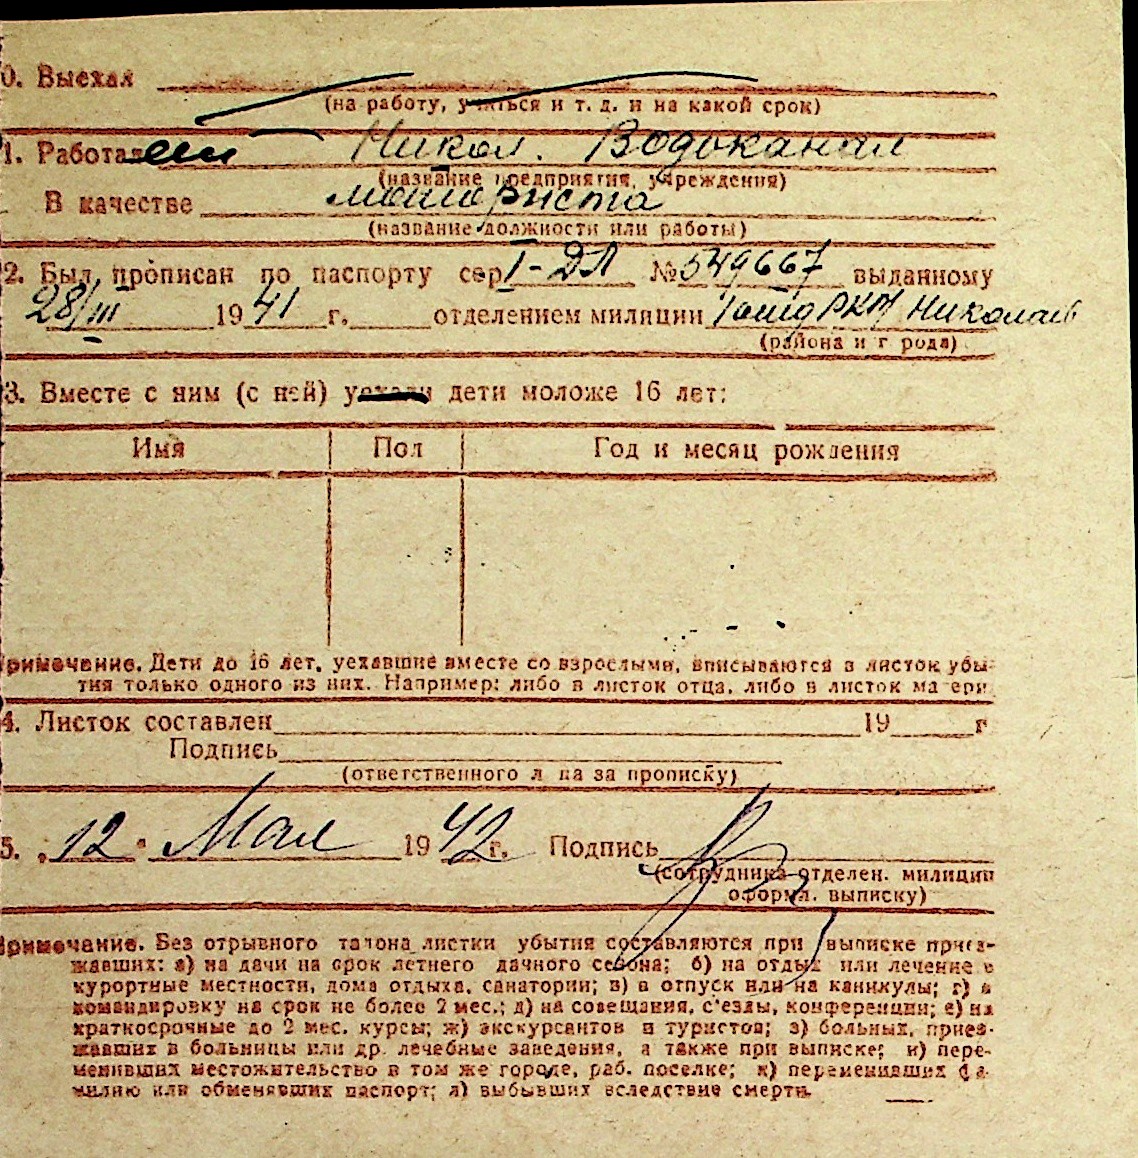 0. Выехал
(на работу, учиться и т. д. и на какой срок)
1. Работал Никол. Водоканал
(название предприятия, учреждения)
В качестве моториста
(название должности или работы)
2. Был прописан по паспорту сер I-ДЛ № 549667 выданному
28/III 1941 г. отделением милиции РКМ Николаев
(района и г рода)
3. Вместе с ним (с ней) уехали дети моложе 16 лет:
Имя Пол Год и месяц рождения
Примечание. Дети до 16 лет, уехавшие вместе со взрослыми, вписываются в листок убы-
тия только одного из них. Например: либо в листок отца, либо в листок ма ери
4. Листок составлен 19 г
Подпись
(ответственного л ца за прописку)
5. "12" Мая 1942 г. Подпись
(сотрудника отделен. милиции
оформл. выписку)
Примечание. Без отрывного талона листки убытия составляются при выписке приез-
жавших: а) на дачи на срок летнего дачного сезона; б) на отдых или лечение в
курортные местности, дома отдыха, санатории; в) в отпуск или на каникулы; г) в
командировку на срок не более 2 мес.; д) на совещания, с'езды, конференции; е) на
краткосрочные до 2 мес. курсы; ж) экскурсантов и туристов; з) больных, приез-
жавших в больницы или др. лечебные заведения, а также при выписке; и) пере-
менивших местожительство в том же городе, раб. поселке; к) переменивших фа-
милию или обменявших паспорт; л) выбывших вследствие смерти.